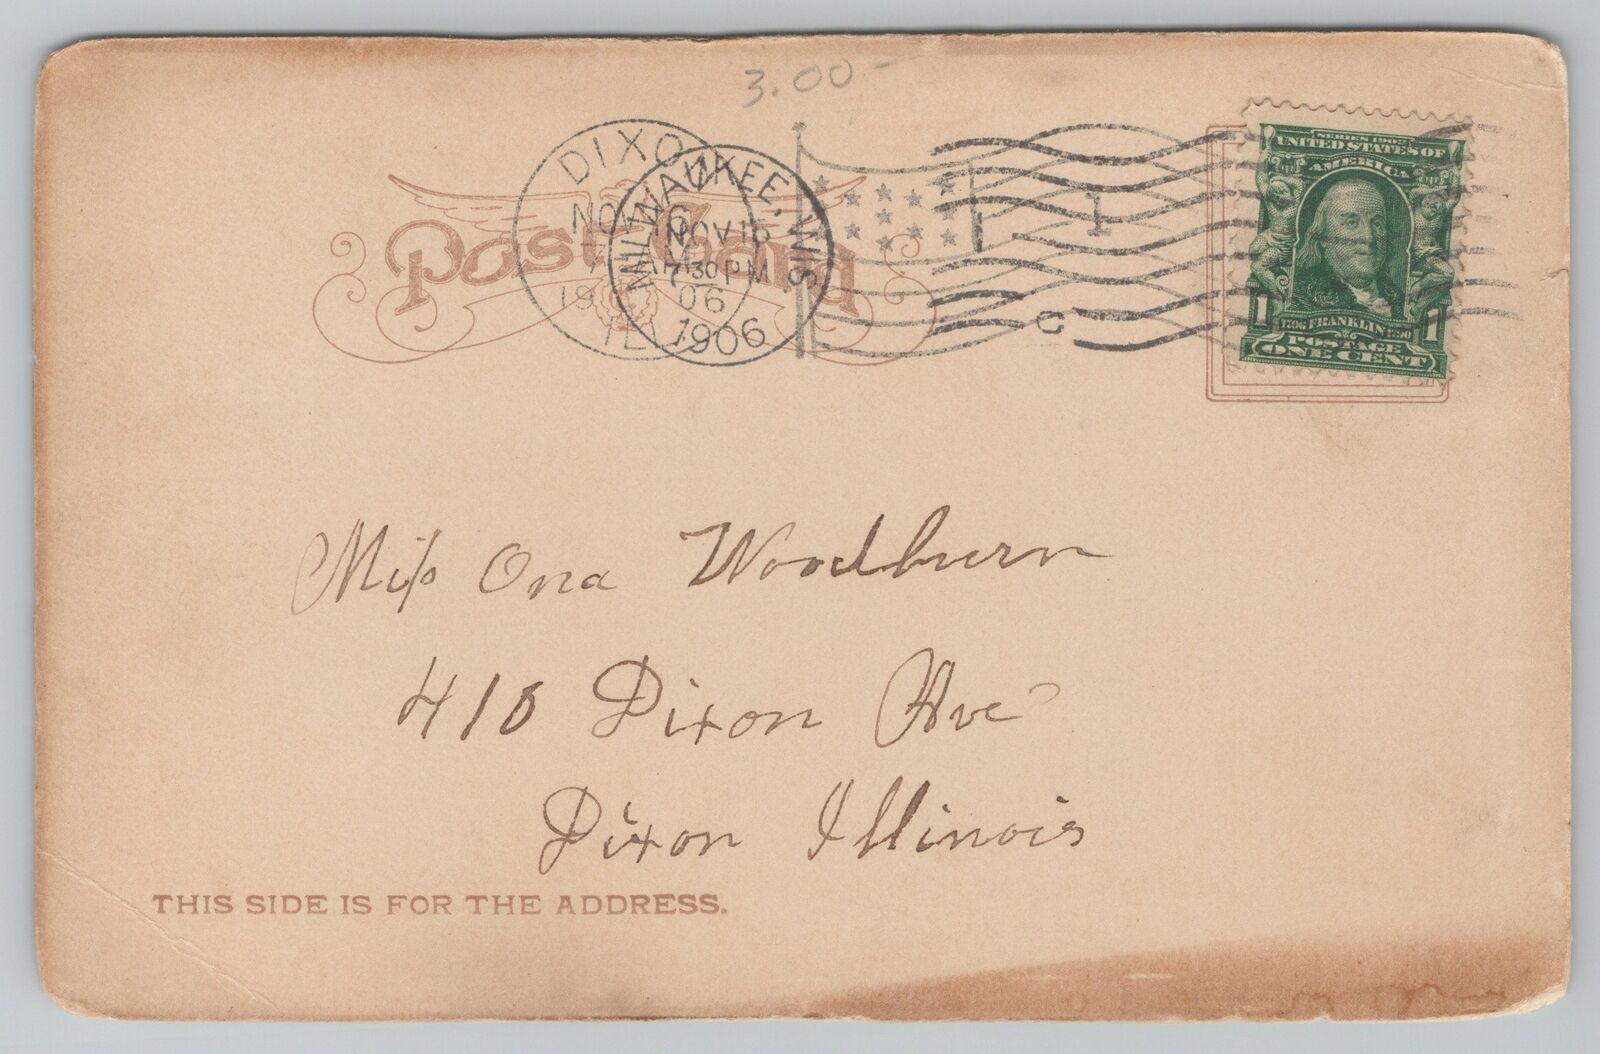 3.00
DIXON
NOV 16
ILL
MILWAUKEE, WIS.
NOV 15
7-30 PM
06
1906
1
C
Post Card
SERIES 1902
UNITED STATES OF
AMERICA
1706 FRANKLIN 1790
1 POSTAGE 1
ONE CENT
Miss Ona Woodburn
418 Dixon Ave
Dixon Illinois
THIS SIDE IS FOR THE ADDRESS.